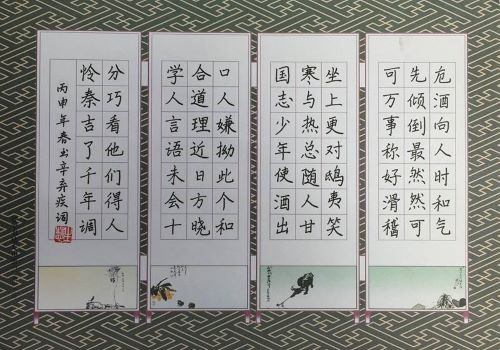 卮酒向人时和气
先倾倒最然然可
可万事称好滑稽
坐上更对鸱夷笑
寒与热总随人甘
国志少年使酒出
口人嫌拗此个和
合道理近日方晓
学人言语未会十
分巧看他们得人
怜秦吉了千年调
丙申年春书辛弃疾词